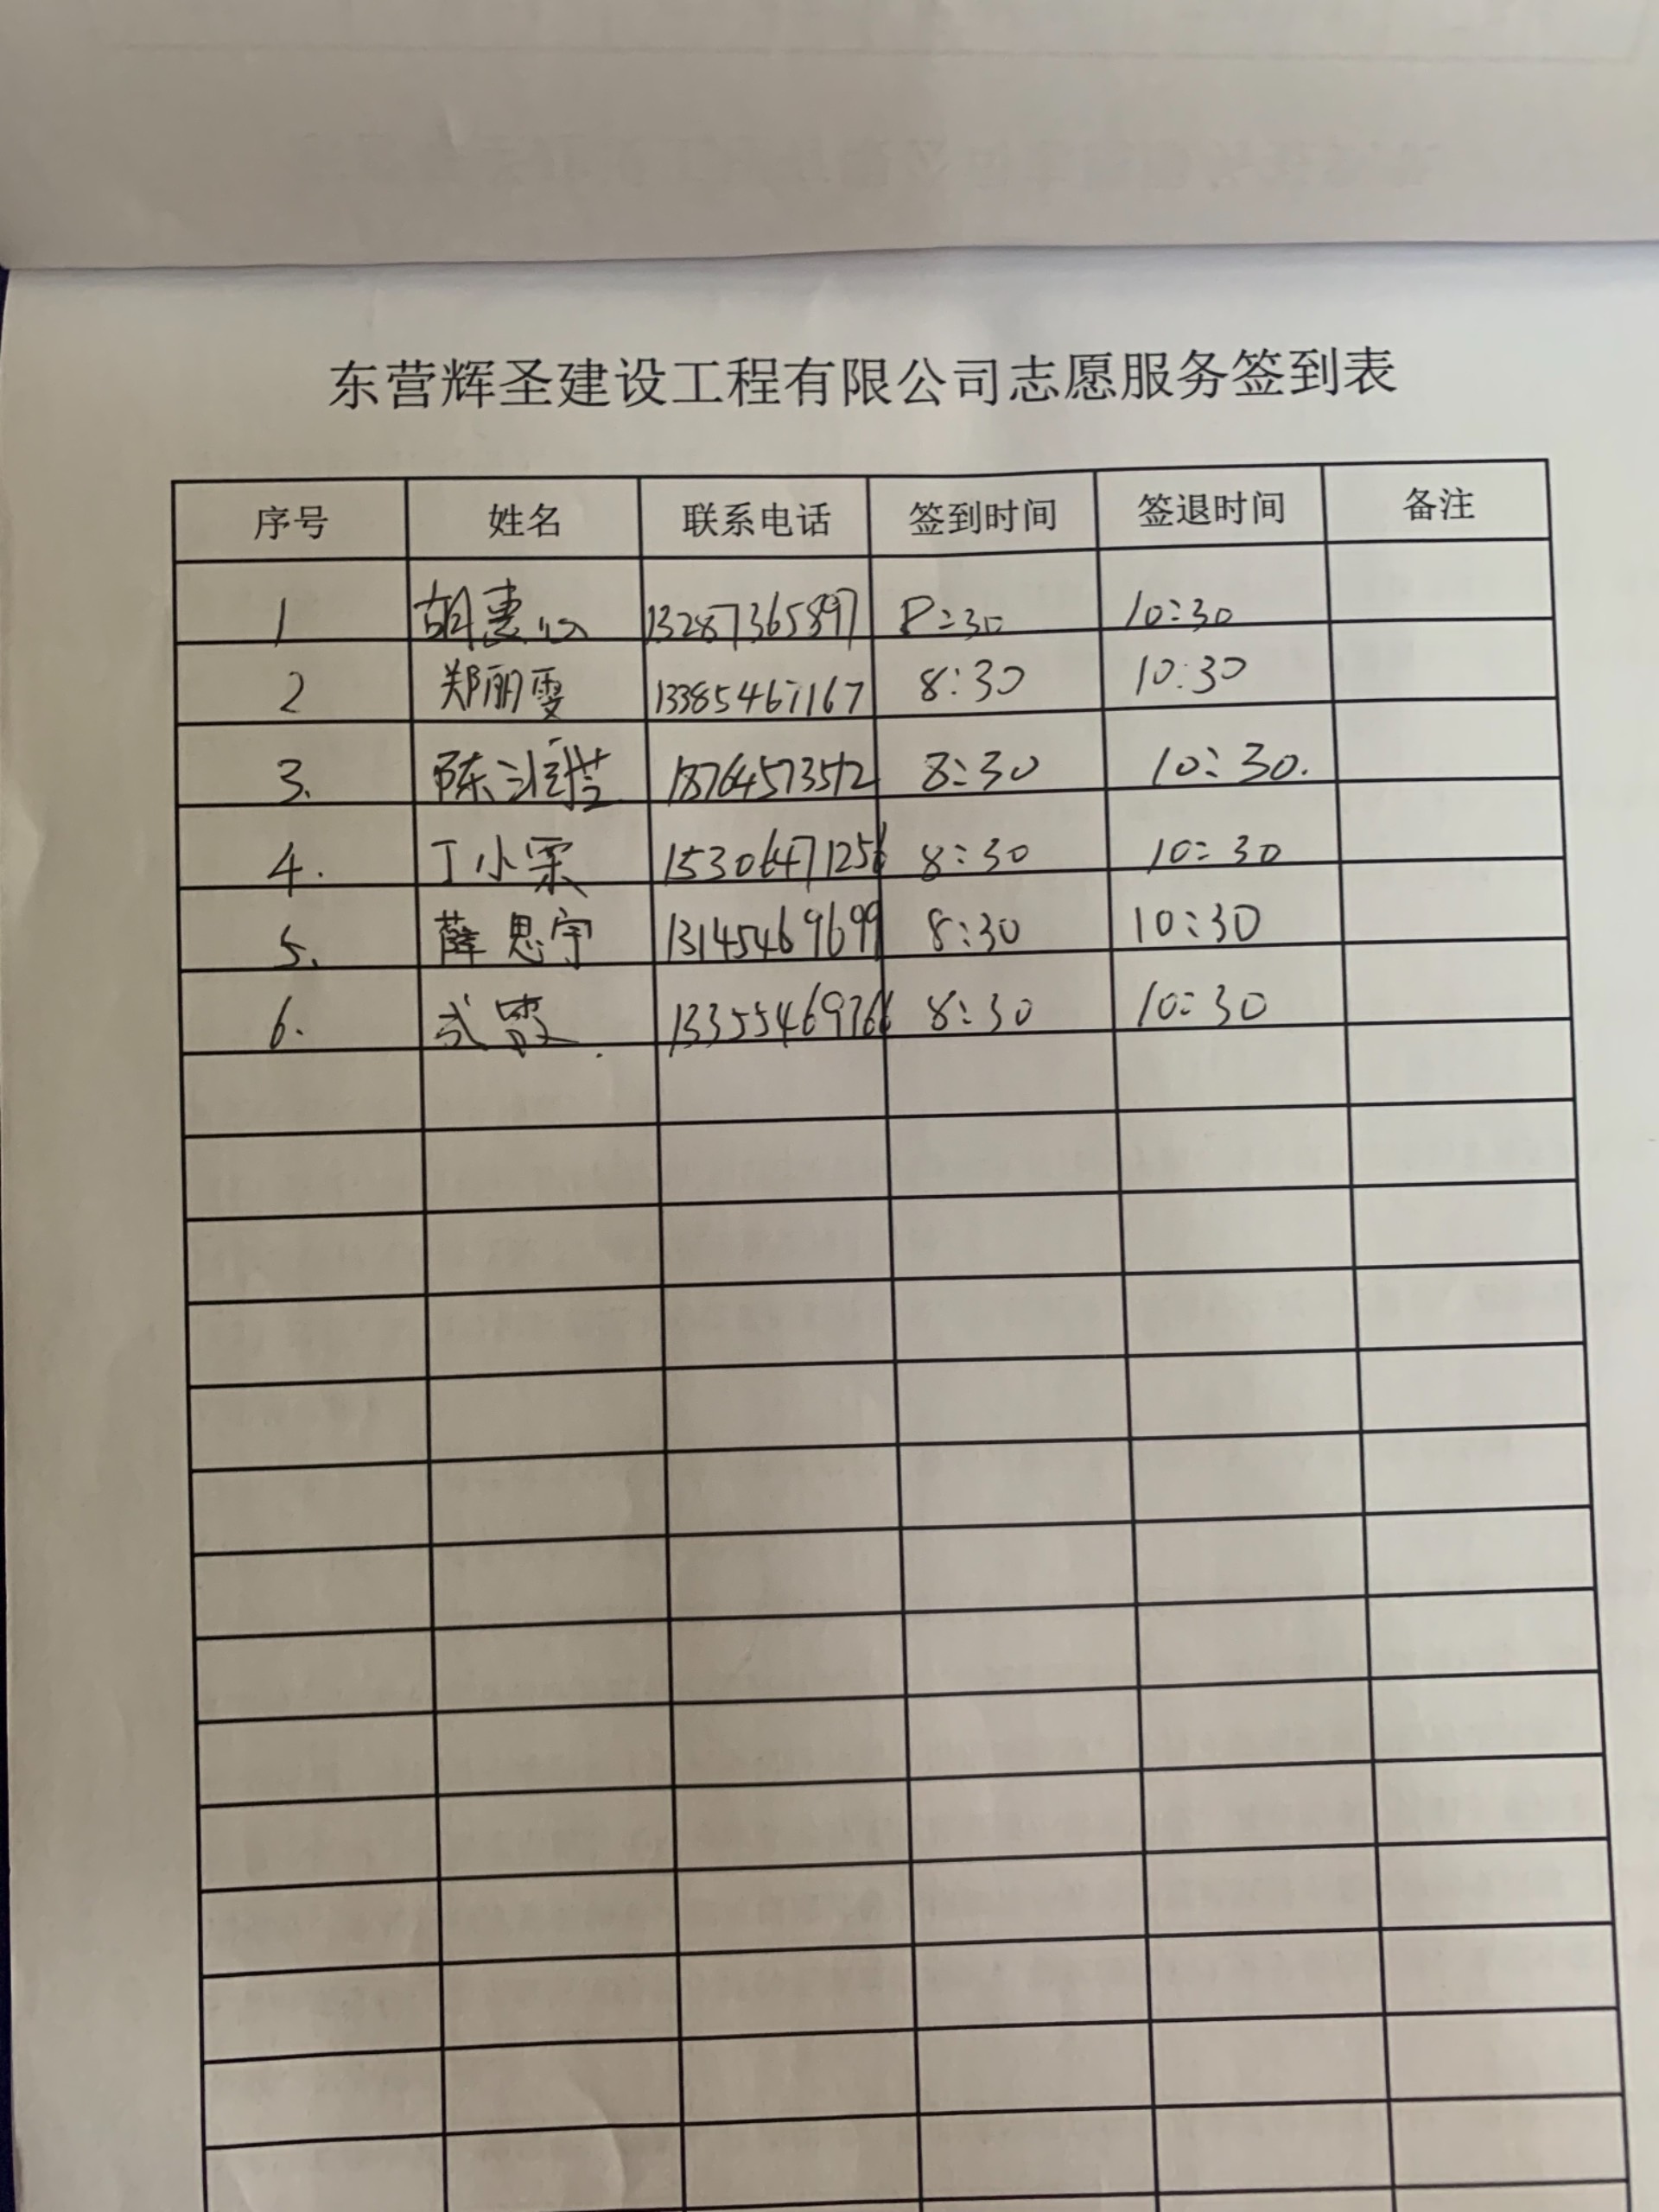 东营辉圣建设工程有限公司志愿服务签到表
序号 姓名 联系电话 签到时间 签退时间 备注
1 胡惠 13287365897 8:30 10:30
2 郑丽雯 13385467167 8:30 10:30
3. 陈 18764573572 8:30 10:30.
4. 丁小栗 15306471256 8:30 10:30
5. 薛思宇 13145469699 8:30 10:30
6. 武霞 13355469766 8:30 10:30